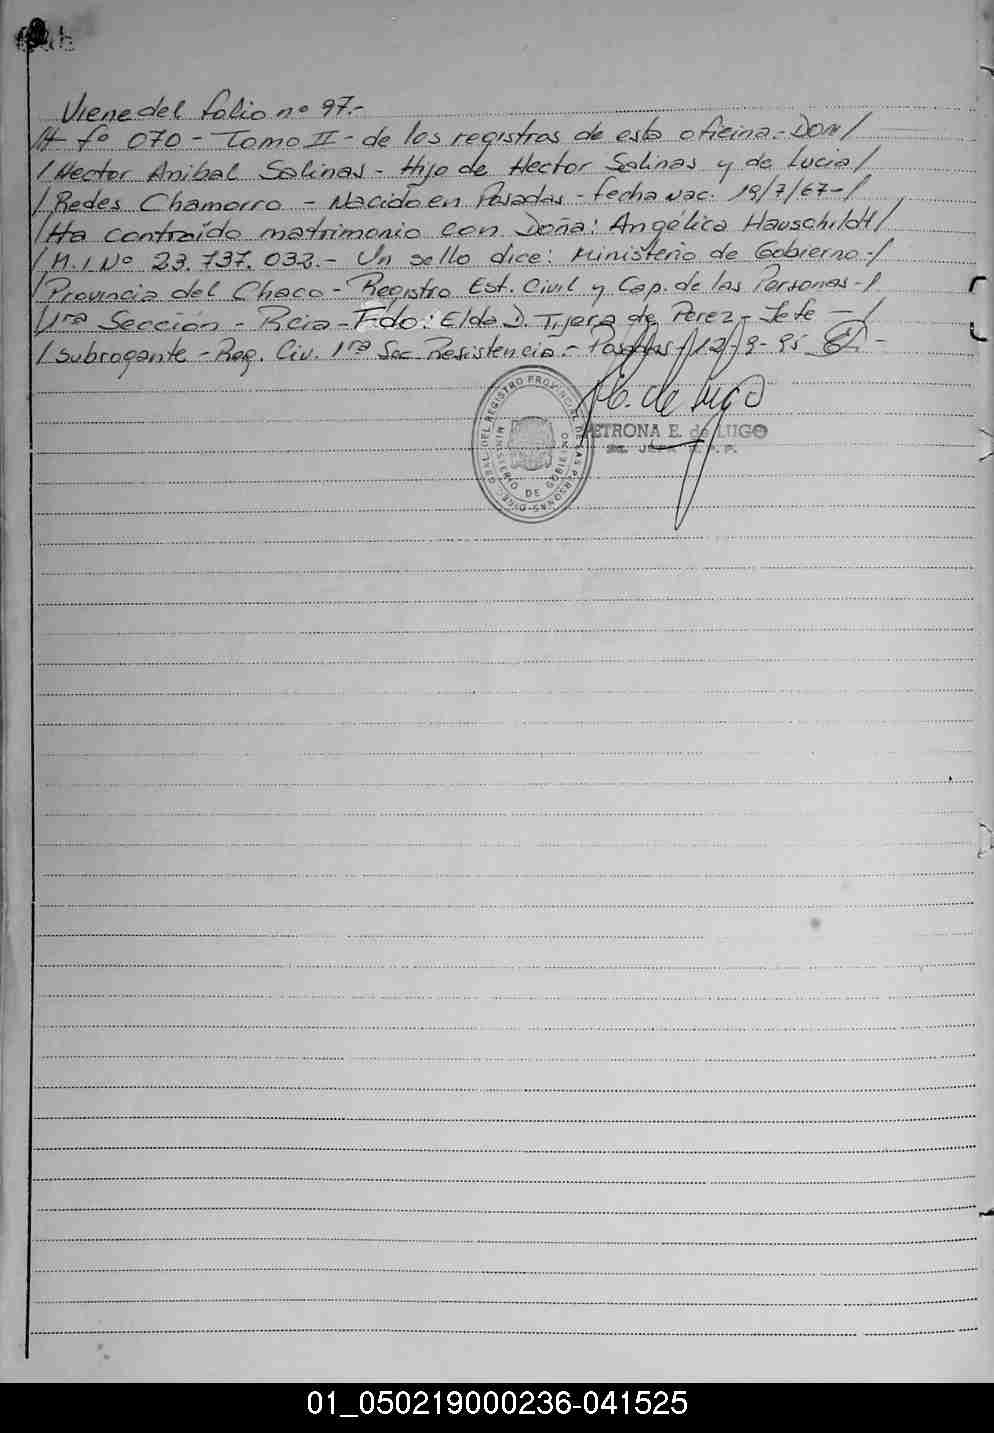 Viene del folio nº 97.-
Al fº 070 - Tomo II - de los registros de esta oficina - Don /
/ Hector Anibal Salinas - Hijo de Hector Salinas y de Lucia /
/ Redes Chamorro - Nacido en Posadas - fecha nac. 19/7/67 - /
/ Ha contraído matrimonio con Doña: Angélica Hauschildt /
/ M.I Nº 23.737.032.- Un sello dice: Ministerio de Gobierno - /
/ Provincia del Chaco - Registro Est. Civil y Cap. de las Personas - /
/ 1ra Sección - Rcia - Fdo: Elda D. Tijera de Perez - Jefe - /
/ subrogante - Reg. Civ. 1ra Sec Resistencia - Posadas 12-9-95
E. de Lugo
PETRONA E. de LUGO
DIREC. GRAL. DEL REGISTRO PROVINCIAL DE LAS PERSONAS
MINISTERIO DE GOBIERNO
01_050219000236-041525